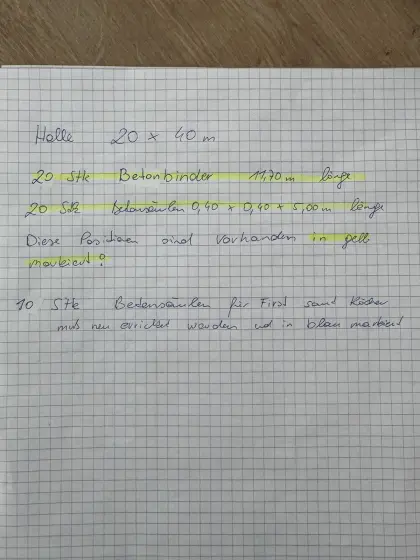 Halle 20 x 40 m
20 Stk Betonbinder 11,70 m länge
20 Stk betonsäulen 0,40 + 0,40 + 5,00 m länge
Diese Positionen sind vorhanden in gelb
markiert?
10 Stk Betonsäulen für First samt Köcher
muß neu errichtet werden und in blau markiert